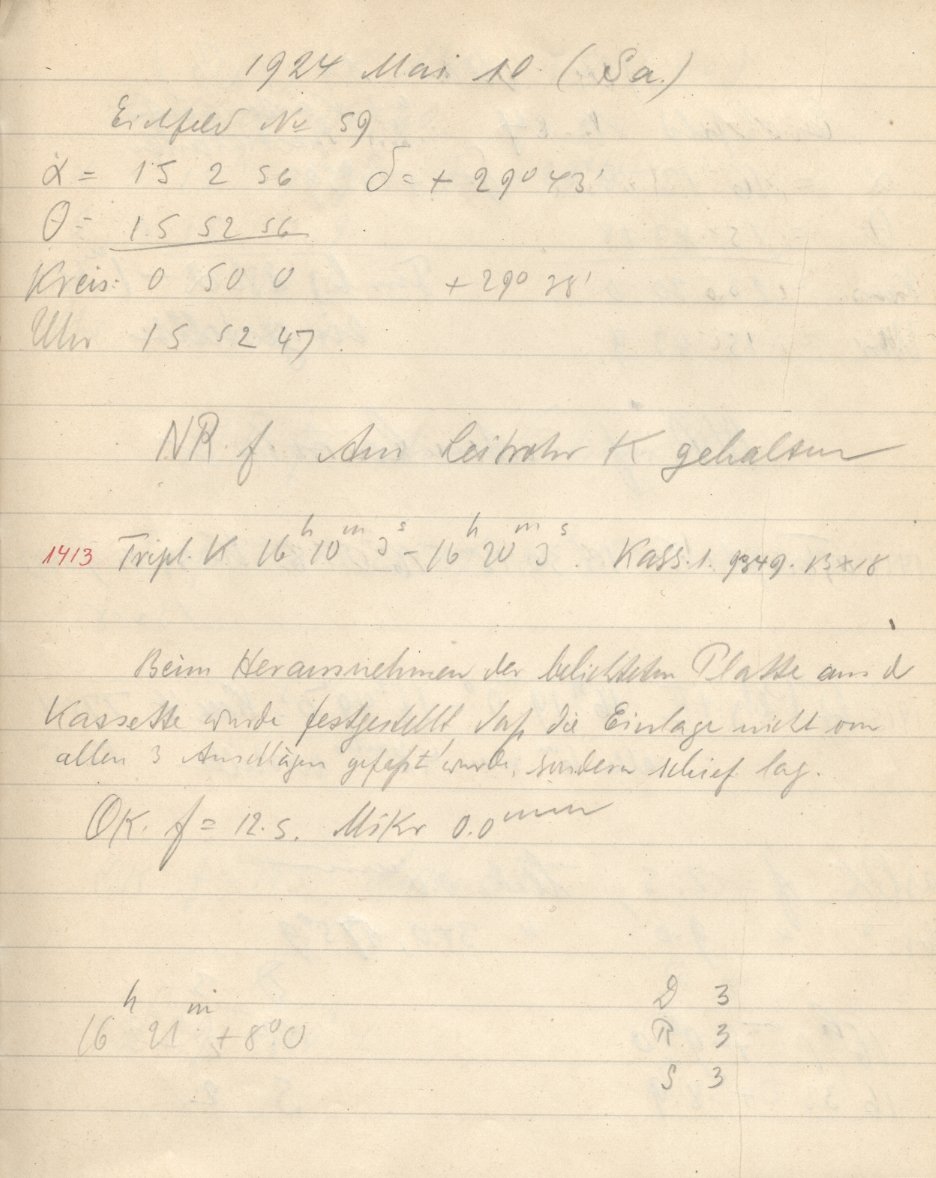 1924 Mai 10. (Sa.)
Eichfeld No 59
α = 15 2 56 δ = + 29° 43'
θ = 15 52 56
Kreis: 0 50 0 + 29° 38'
Uhr 15 52 47
NR. f. Am Leitrohr K gehalten
1413 Tripl. K 16h 10m 3s - 16h 20m 3s. Kass. 1. 9349.
Beim Herausnehmen der belichteten Platte aus d
Kassette wurde festgestellt daß die Einlage nicht von
allen 3 Anschlägen gefaßt wurde, sondern schief lag.
OK. f = 12.5. Mikr 0.0mm
16h 21m + 8°0
D 3
R. 3
S 3